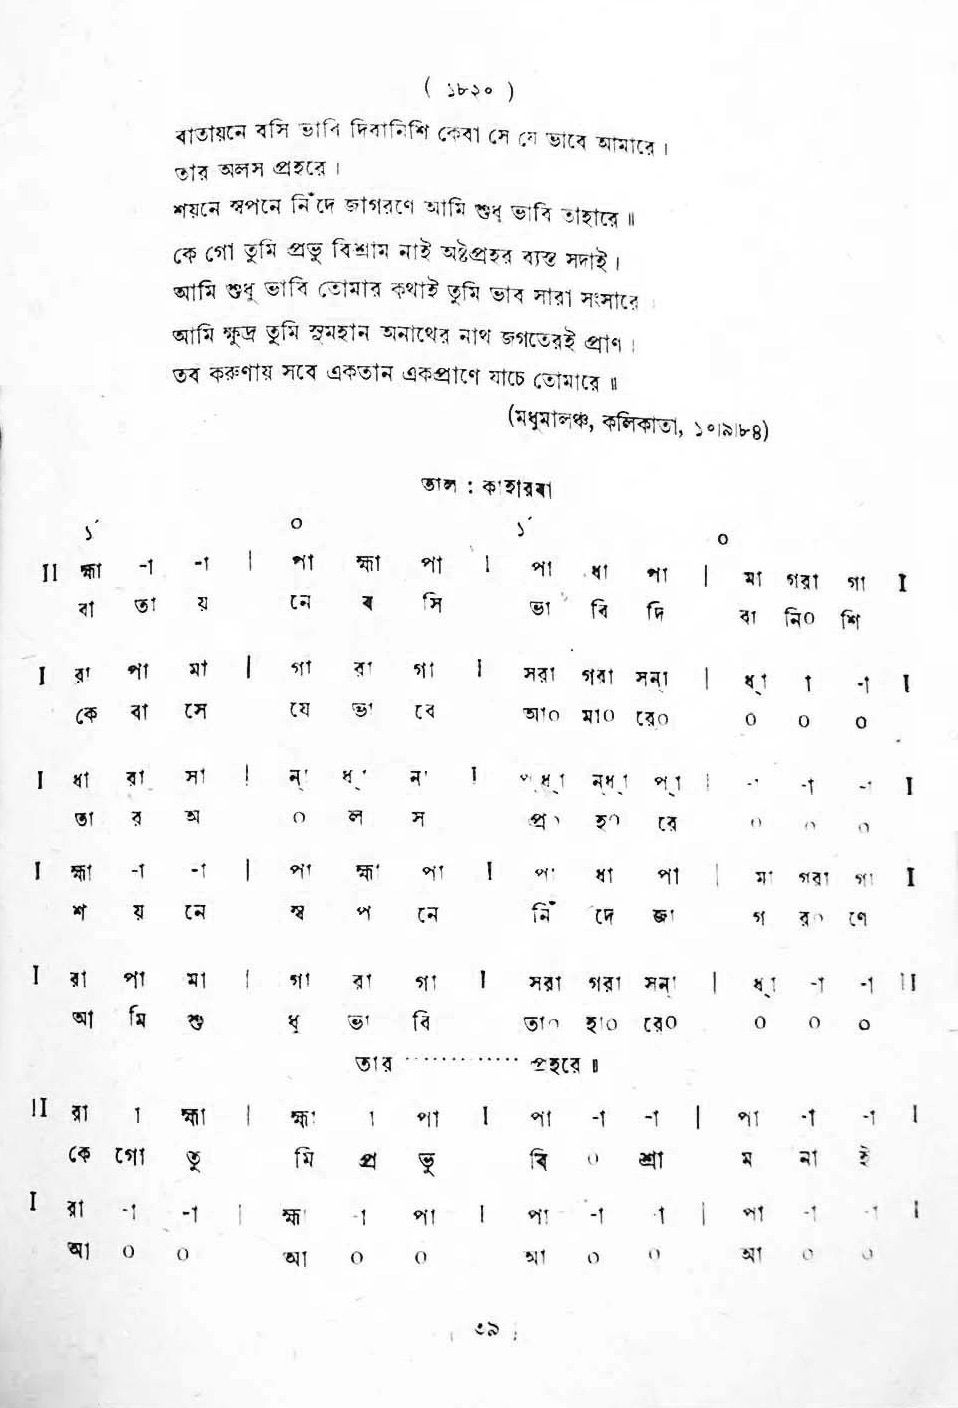 ( ১৮২০ )
বাতায়নে বসি ভাবি দিবানিশি কেবা সে যে ভাবে আমারে।
তার অলস প্রহরে।
শয়নে স্বপনে নিঁদে জাগরণে আমি শুধু ভাবি তাহারে॥
কে গো তুমি প্রভু বিশ্রাম নাই অষ্টপ্রহর ব্যস্ত সদাই।
আমি শুধু ভাবি তোমার কথাই তুমি ভাব সারা সংসারে
আমি ক্ষুদ্র তুমি সুমহান অনাথের নাথ জগতেরই প্রাণ।
তব করুণায় সবে একতান একপ্রাণে যাচে তোমারে॥
(মধুমালঞ্চ, কলিকাতা, ১০।৯।৮৪)
তাল : কাহারবা
১´ ০ ১´ ০
II হ্মা -া -া | পা হ্মা পা I পা ধা পা | মা গরা গা I
বা তা য় নে ব সি ভা বি দি বা নি০ শি
I রা পা মা | গা রা গা I সরা গরা সন্া | ধ্া া -া I
কে বা সে যে ভা বে আ০ মা০ রে০ ০ ০ ০
I ধা রা সা | ন্া ধ্া ন্া I প্ধ্া ন্ধ্া প্া | -া -া -া I
তা র অ ০ ল স প্র০ হ০ রে ০ ০ ০
I হ্মা -া -া | পা হ্মা পা I পা ধা পা | মা গরা গা I
শ য় নে স্ব প নে নিঁ দে জা গ র০ ণে
I রা পা মা | গা রা গা I সরা গরা সন্া | ধ্া -া -া II
আ মি শু ধু ভা বি তা০ হা০ রে০ ০ ০ ০
তার ············ প্রহরে॥
II রা া হ্মা | হ্মা া পা I পা -া -া | পা -া -া I
কে গো তু মি প্র ভু বি ০ শ্রা ম না ই
I রা -া -া | হ্মা -া পা I পা -া -া | পা -া -া I
আ ০ ০ আ ০ ০ আ ০ ০ আ ০ ০
৩৯